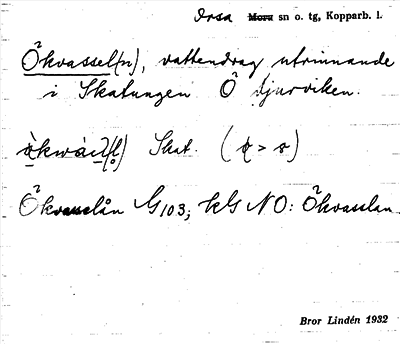 Orsa Mora sn o. tg, Kopparb. l.
Ökvassel(n), vattendrag utrinnande
i Skatungen Ö Djurviken.
Skat. ( > s)
Ökvasslån G103; kG NO: Ökvasslan
Bror Lindén 1932